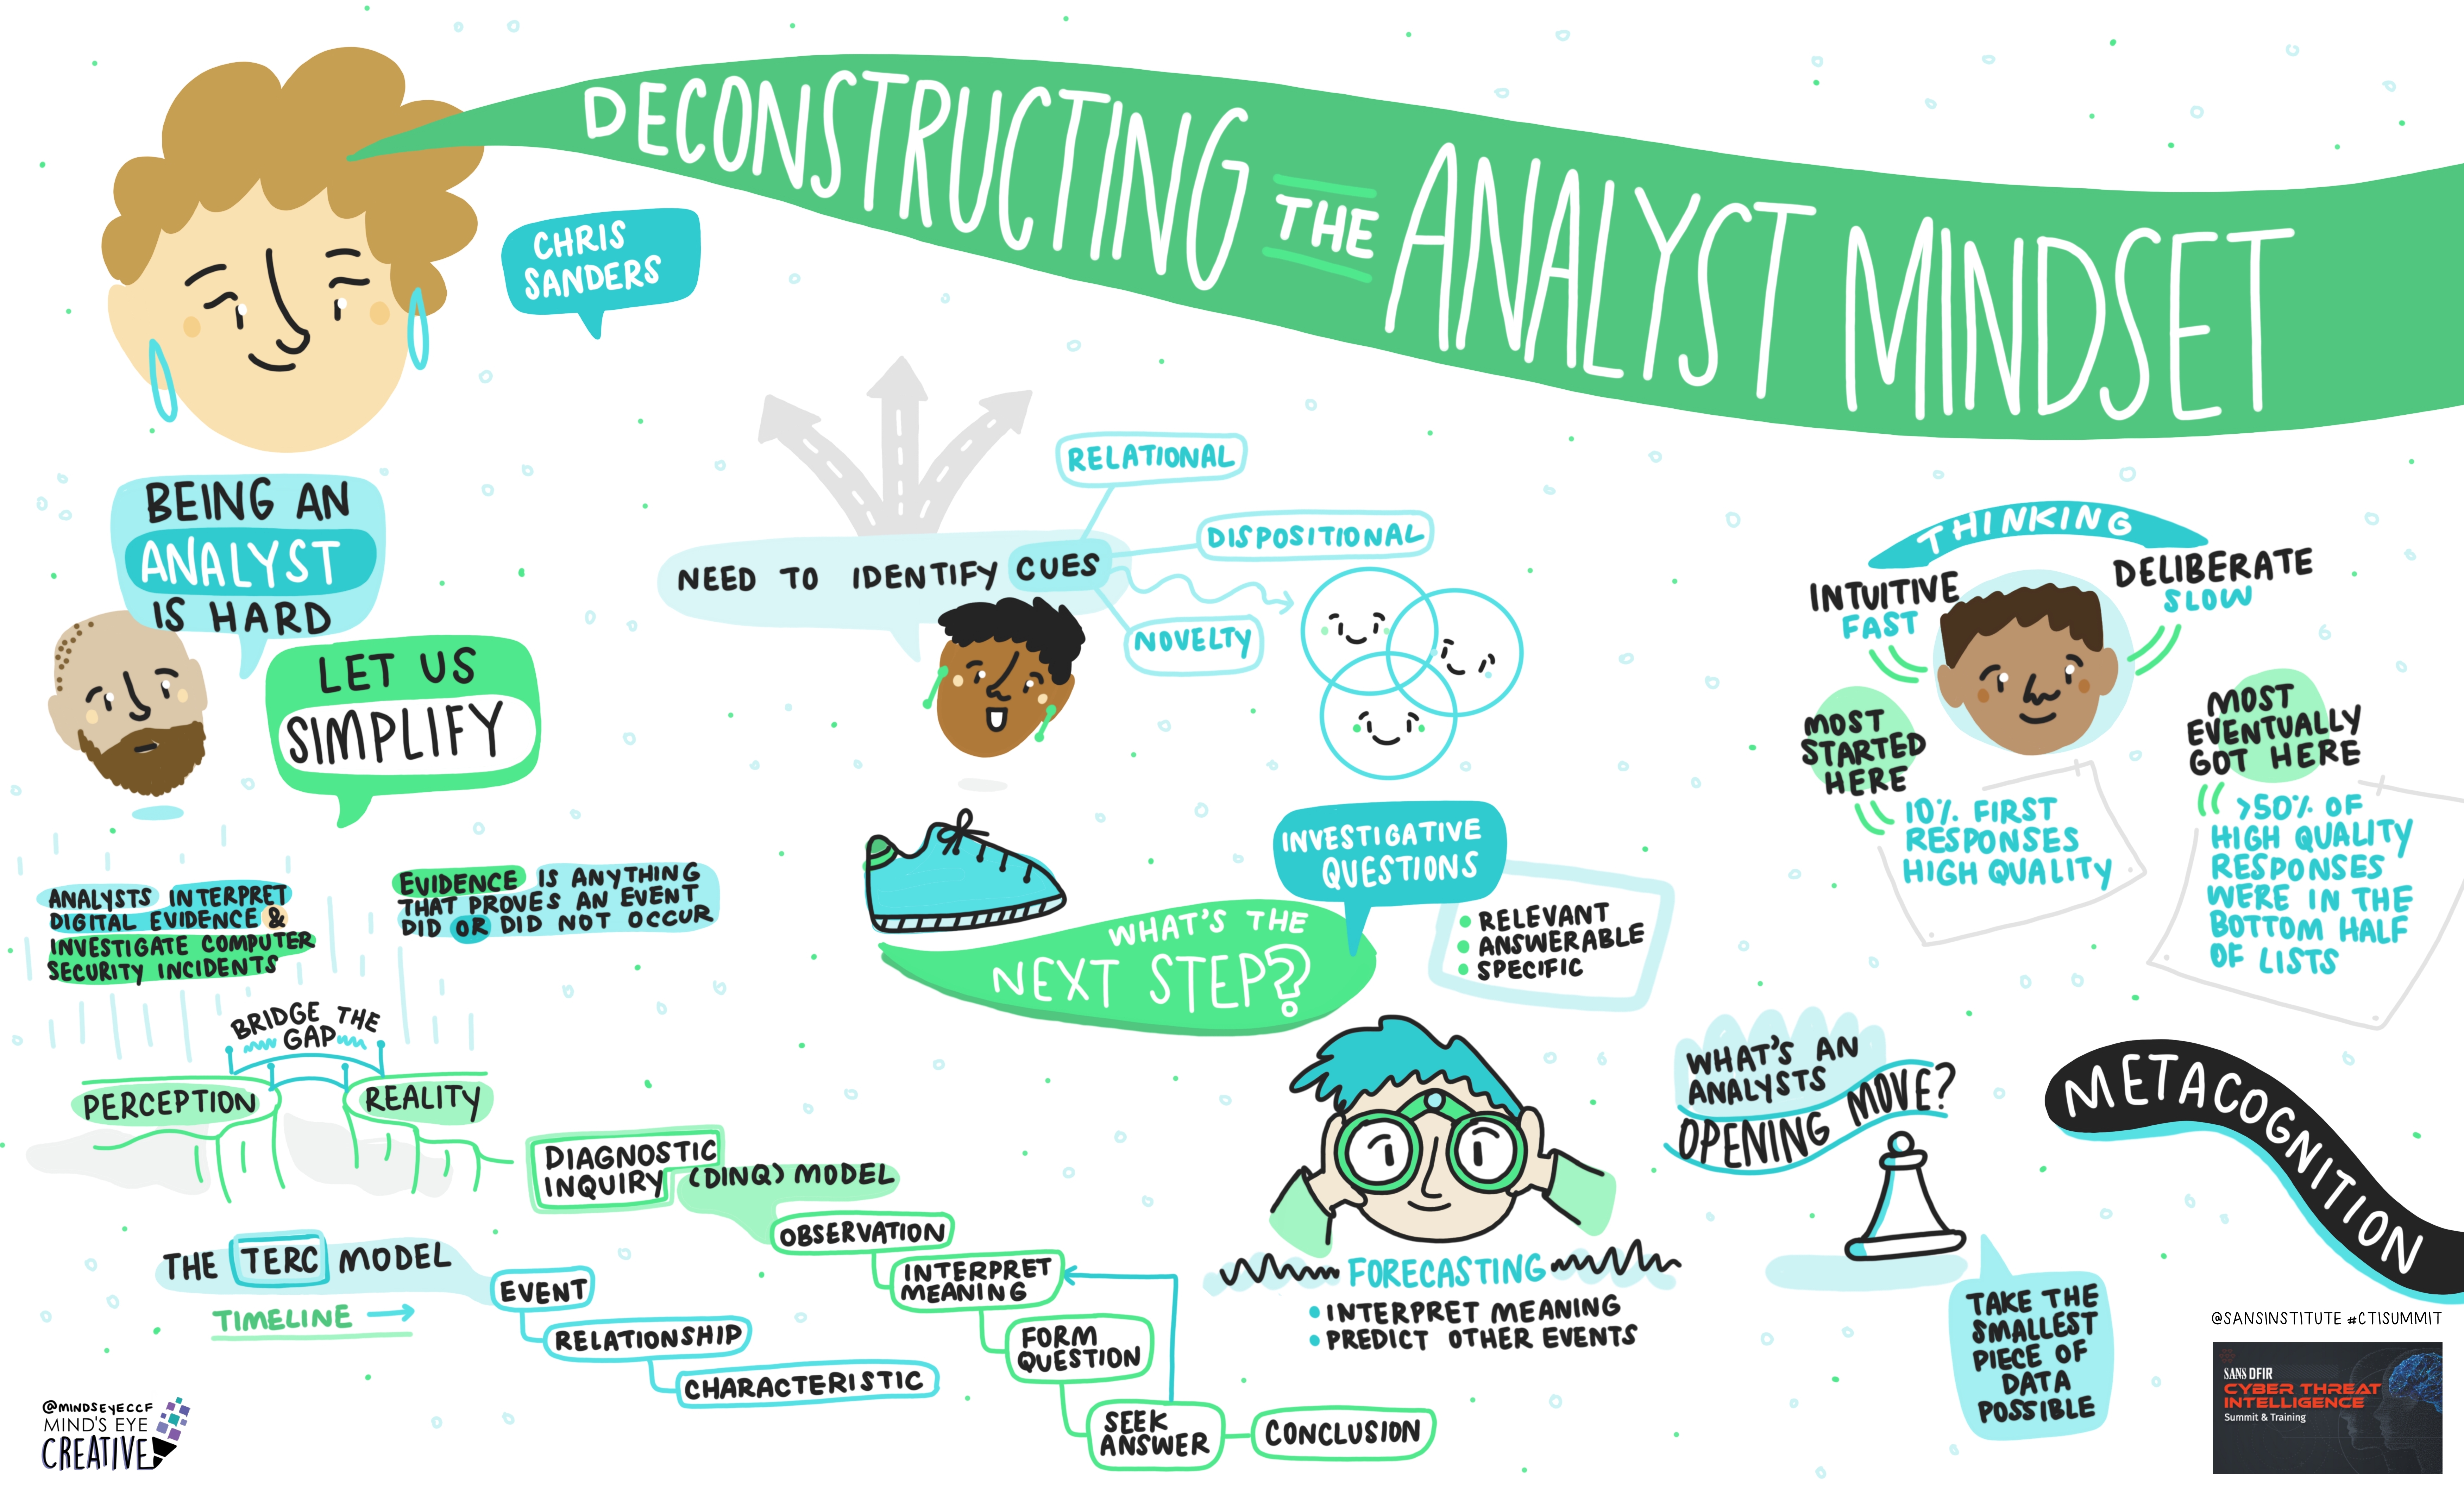 DECONSTRUCTING THE ANALYST MINDSET
CHRIS
SANDERS
BEING AN
ANALYST
IS HARD
LET US
SIMPLIFY
ANALYSTS INTERPRET
DIGITAL EVIDENCE &
INVESTIGATE COMPUTER
SECURITY INCIDENTS
EVIDENCE IS ANYTHING
THAT PROVES AN EVENT
DID OR DID NOT OCCUR
BRIDGE THE
GAP
PERCEPTION
REALITY
THE TERC MODEL
TIMELINE
EVENT
RELATIONSHIP
CHARACTERISTIC
DIAGNOSTIC
INQUIRY (DINQ) MODEL
OBSERVATION
INTERPRET
MEANING
FORM
QUESTION
SEEK
ANSWER
CONCLUSION
NEED TO IDENTIFY CUES
RELATIONAL
DISPOSITIONAL
NOVELTY
WHAT'S THE
NEXT STEP?
INVESTIGATIVE
QUESTIONS
RELEVANT
ANSWERABLE
SPECIFIC
FORECASTING
INTERPRET MEANING
PREDICT OTHER EVENTS
THINKING
INTUITIVE
FAST
DELIBERATE
SLOW
MOST
STARTED
HERE
10% FIRST
RESPONSES
HIGH QUALITY
MOST
EVENTUALLY
GOT HERE
>50% OF
HIGH QUALITY
RESPONSES
WERE IN THE
BOTTOM HALF
OF LISTS
WHAT'S AN
ANALYSTS
OPENING MOVE?
TAKE THE
SMALLEST
PIECE OF
DATA
POSSIBLE
METACOGNITION
@SANSINSTITUTE #CTISUMMIT
SANS DFIR
CYBER THREAT
INTELLIGENCE
Summit & Training
@MINDSEYECCF
MIND'S EYE
CREATIVE